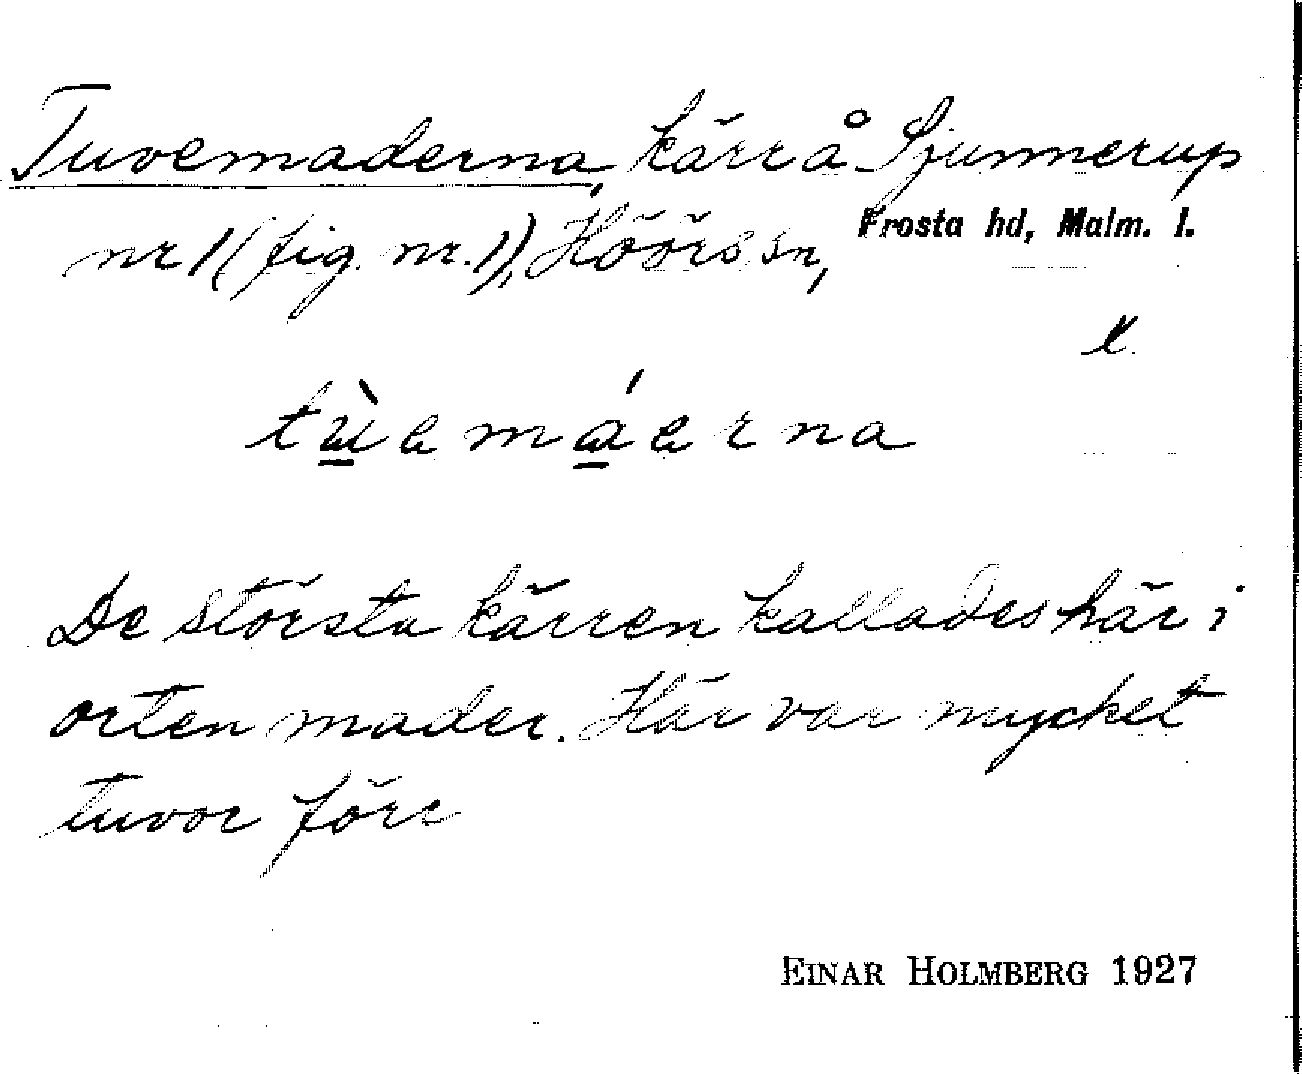 Tuvemaderna, kärr å Sjunnerup
nr 1 (fig. nr. 1), Höörs sn, Frosta hd, Malm. l.
tùemáerna
De största kärren kallades här i
orten mader. Här var mycket
tuvor förr
EINAR HOLMBERG 1927